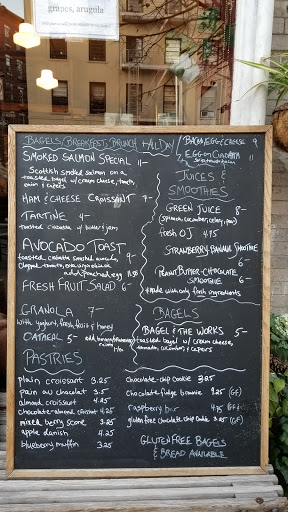 grapes, arugula
BAGELS/BREAKFAST/BRUNCH + ALL DAY
SMOKED SALMON SPECIAL 11-
Scottish smoked salmon on a
toasted bagel w/ cream cheese, tomato,
onion & capers
HAM & CHEESE CROISSANT 7-
TARTINE 4-
toasted ciabatta w/ butter & jam
AVOCADO TOAST
toasted ciabatta, smashed avocado, 9-
add poached egg
FRESH FRUIT SALAD 6-
GRANOLA 7-
with yoghurt, fresh fruit & honey
OATMEAL 5-
PASTRIES
plain croissant 3.25
pain au chocolat 3.5
almond croissant 4.25
chocolate-almond croissant 4.25
mixed berry scone 3-
apple danish 4.25
blueberry muffin 3.25
BACON, EGG & CHEESE 9
EGG ON CIABATTA 7
JUICES &
SMOOTHIES
GREEN JUICE 8-
(spinach, cucumber, celery, pear)
fresh OJ 4.75
STRAWBERRY-BANANA SMOOTHIE
6-
PEANUT BUTTER-CHOCOLATE
SMOOTHIE 6-
*made with only fresh ingredients
BAGELS
BAGEL & THE WORKS 5-
toasted bagel w/ cream cheese,
tomato, cucumber, & capers
chocolate-chip cookie 3.25
chocolate-fudge brownie 3.25 (GF)
raspberry bar 4.75 (GF)
gluten free chocolate chip cookie 3.25 (GF)
GLUTEN FREE BAGELS
& BREAD AVAILABLE